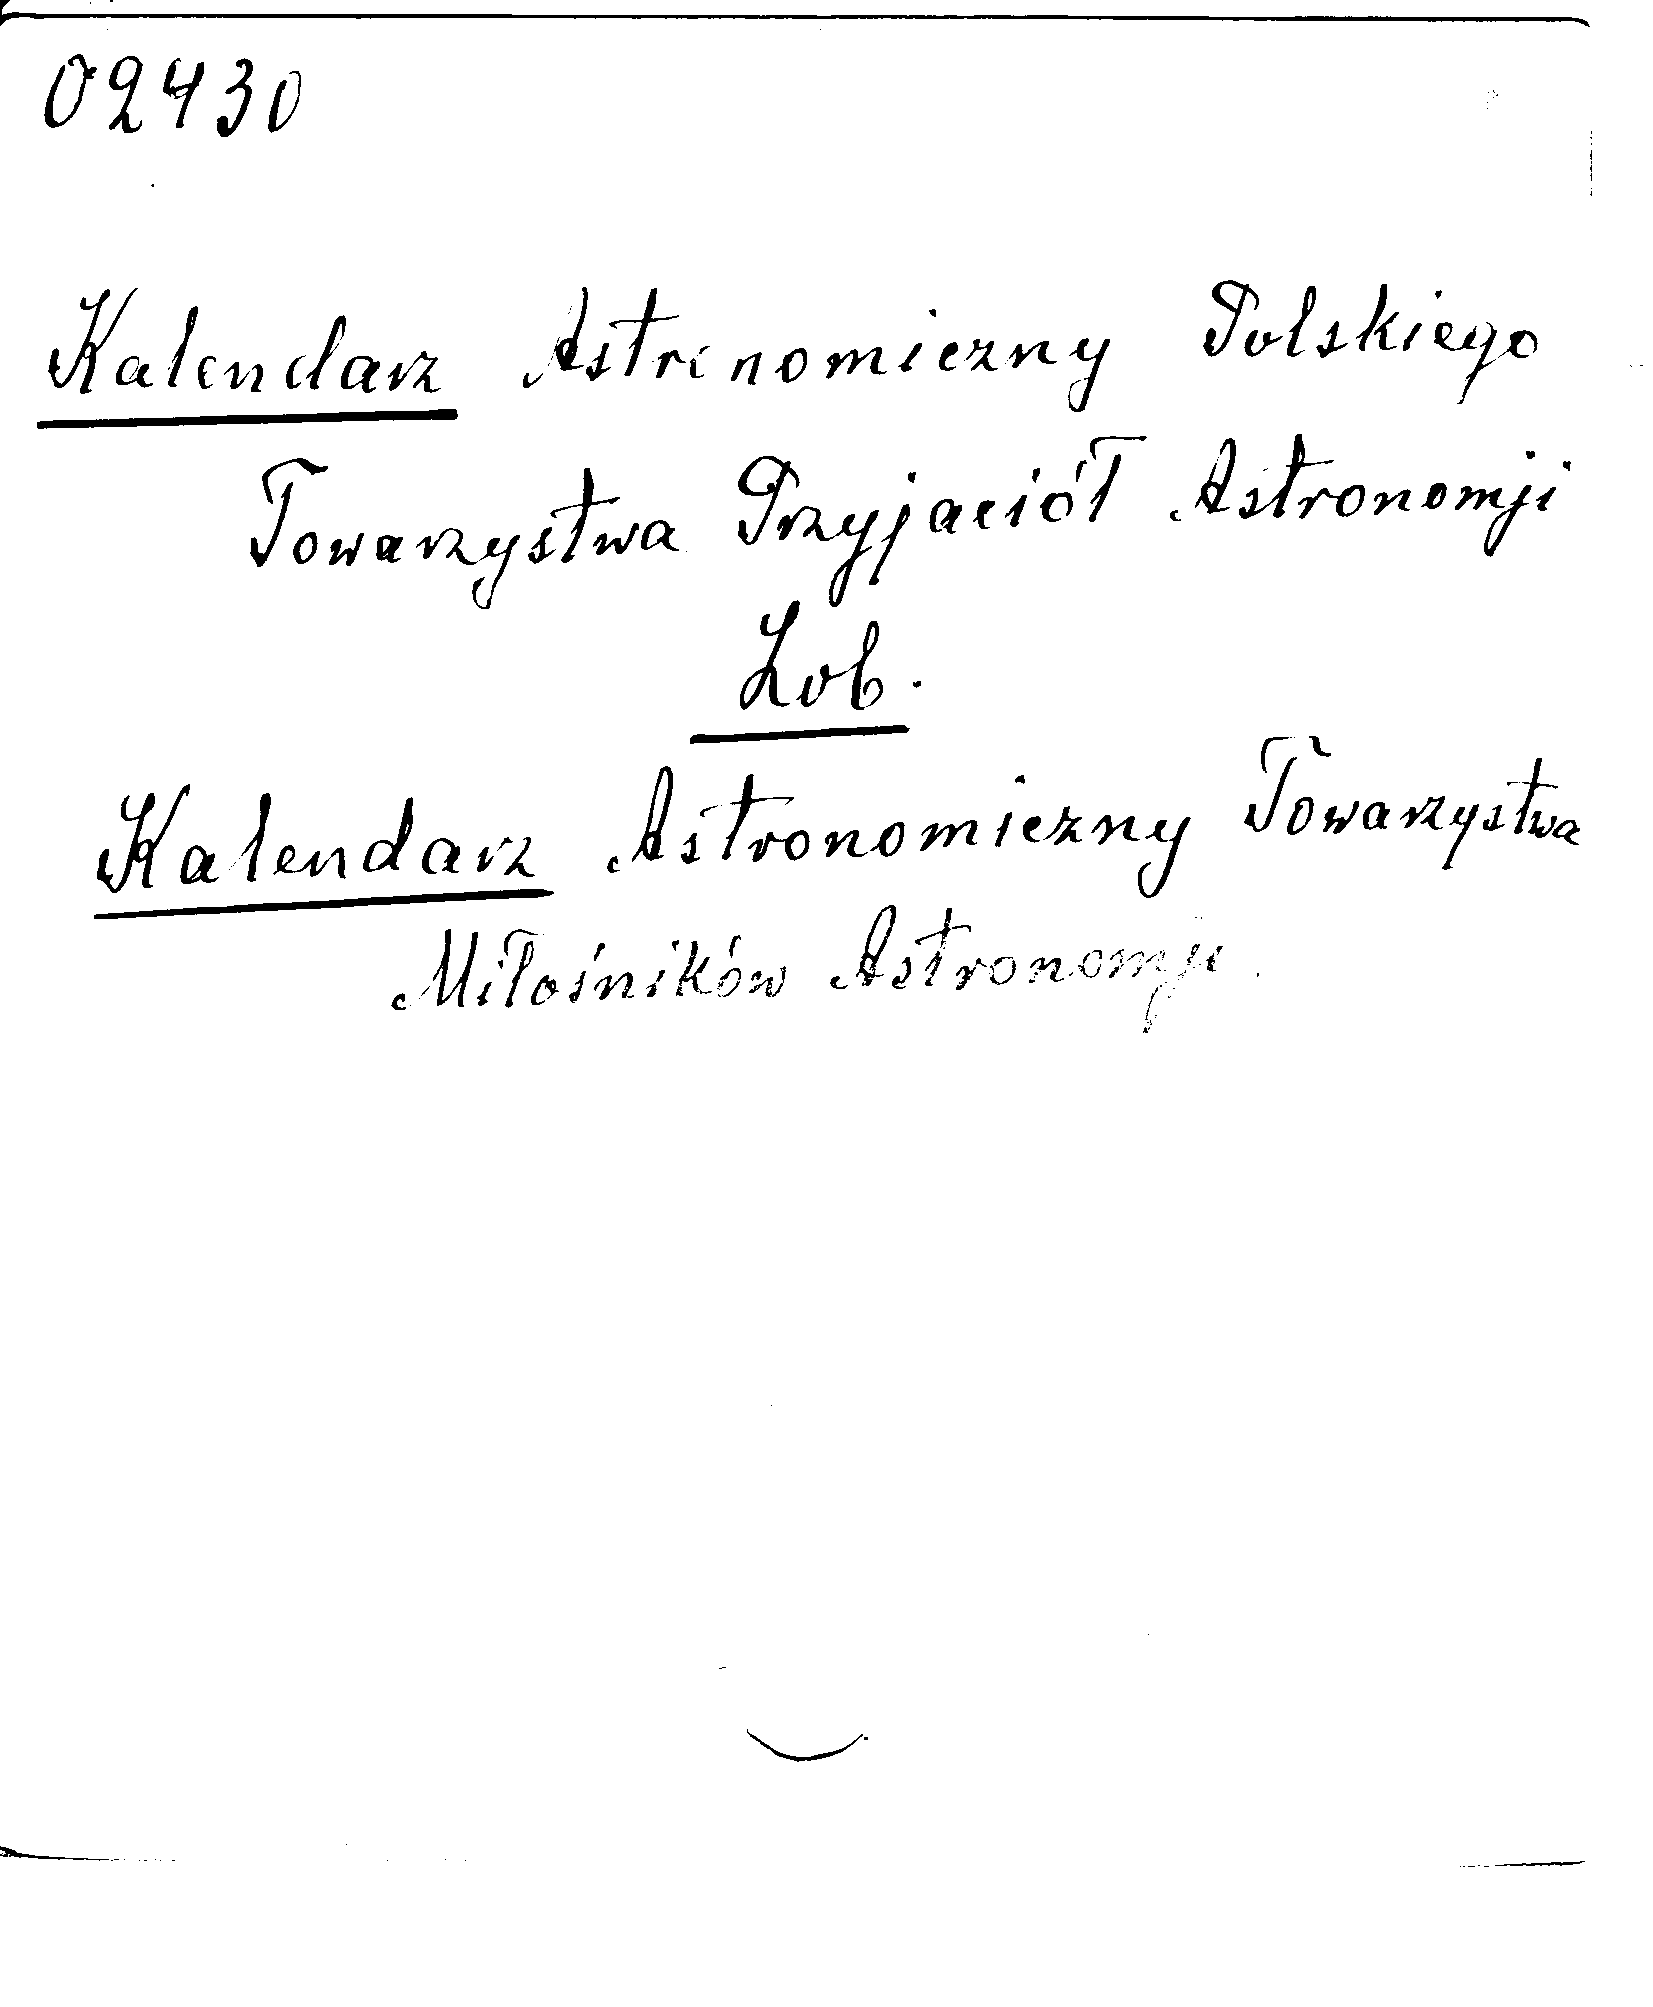 02430
Kalendarz Astronomiczny Polskiego
Towarzystwa Przyjaciół Astronomji
Zob.
Kalendarz Astronomiczny Towarzystwa
Miłośników Astronomji.